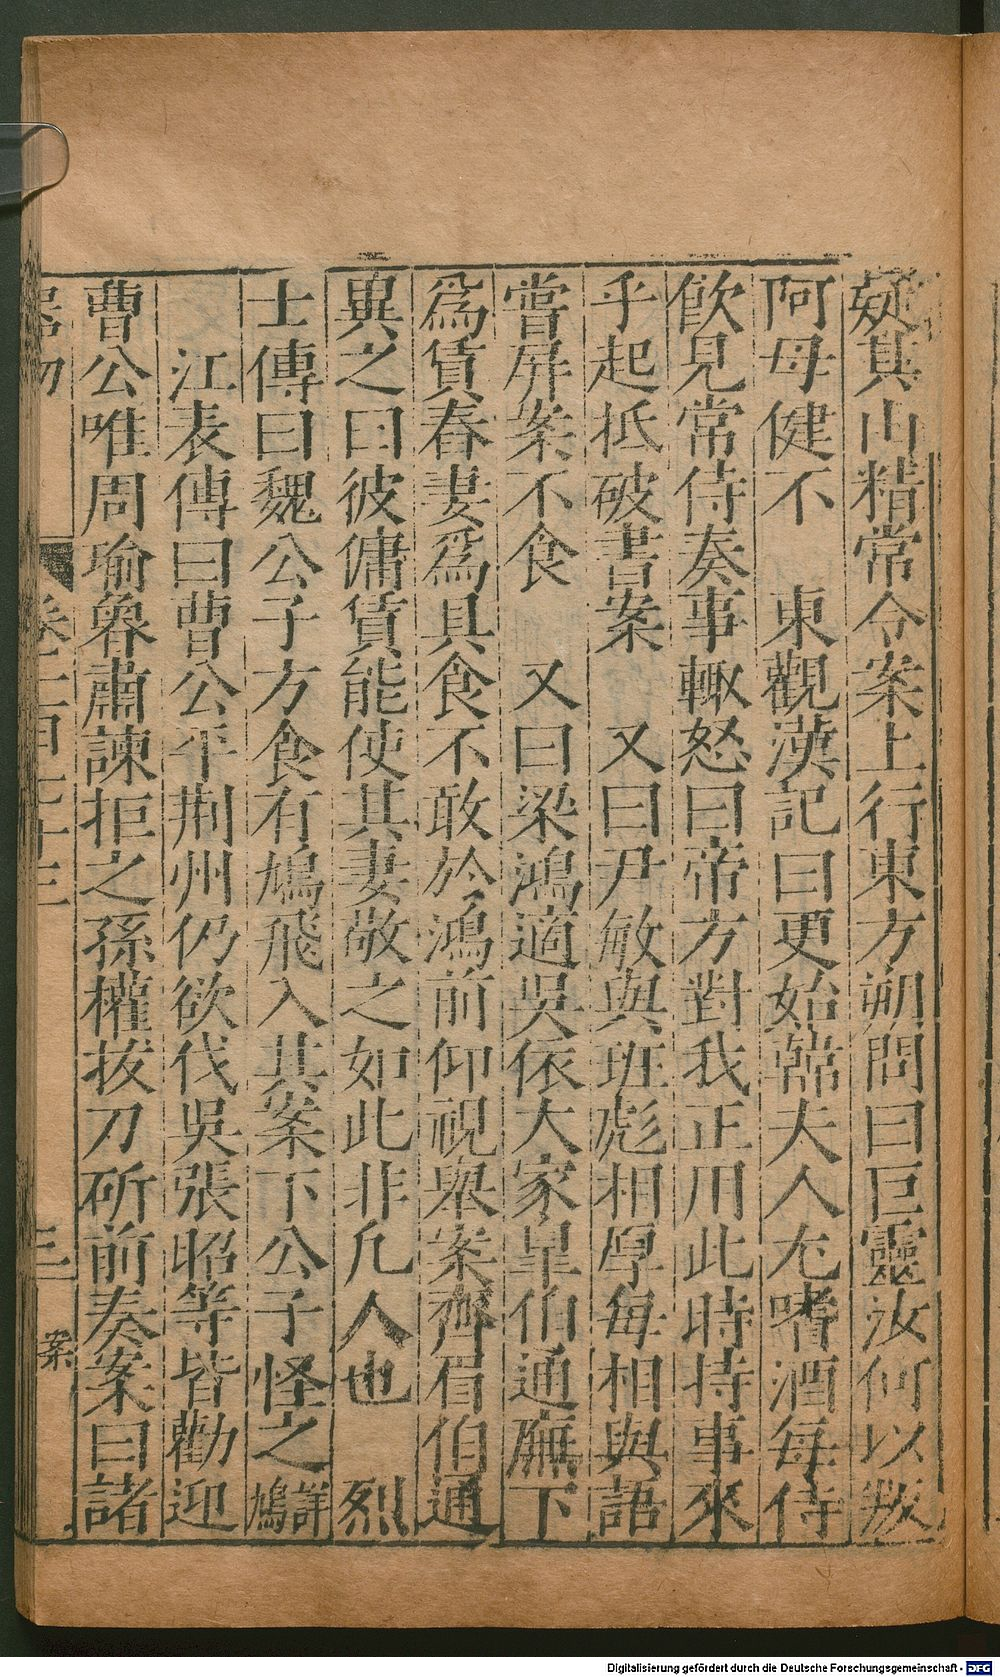 疑其山精常令案上行東方朔問曰巨靈汝何以叛
阿母健不　東觀漢記曰更始韓夫人尤嗜酒每侍
飲見常侍奏事輙怒曰帝方對我正用此時持事來
乎起抵破書案　又曰尹敏與班彪相厚每相與語
嘗屏案不食　又曰梁鴻適吳依大家皐伯通廡下
爲賃舂妻爲具食不敢於鴻前仰視舉案齊眉伯通
異之曰彼傭賃能使其妻敬之如此非凡人也　烈
士傳曰魏公子方食有鳩飛入其案下公子怪之詳鳩
江表傳曰曹公平荆州仍欲伐吳張昭等皆勸迎
曹公唯周瑜魯肅諫拒之孫權拔刀斫前奏案曰諸
三　案
Digitalisierung gefördert durch die Deutsche Forschungsgemeinschaft - DFG